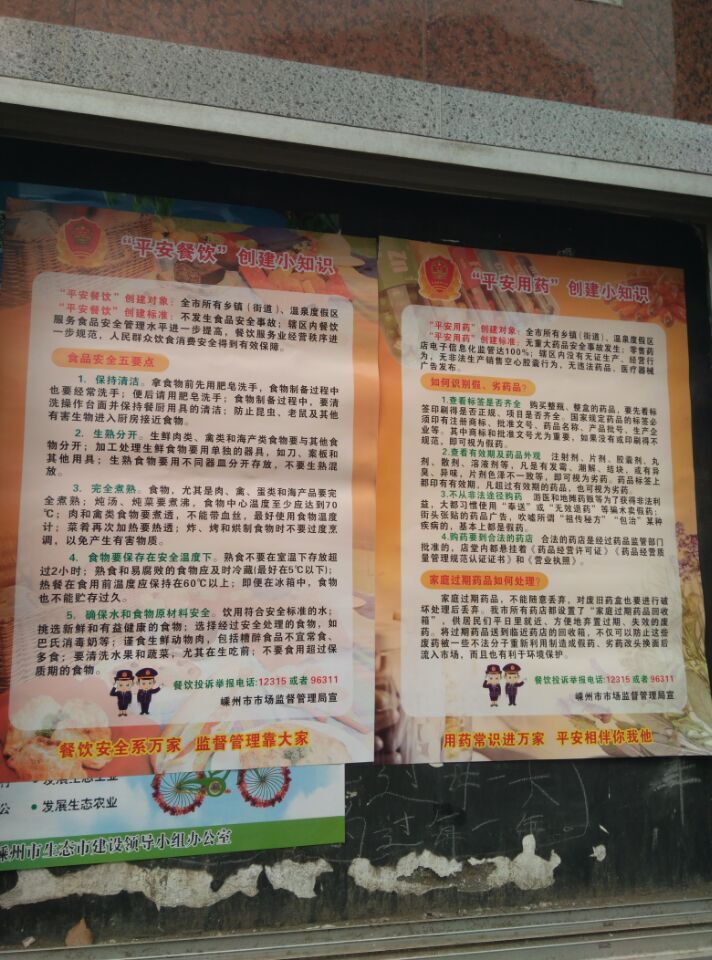 “平安餐饮”创建小知识
“平安餐饮”创建对象：全市所有乡镇（街道）、温泉度假区
“平安餐饮”创建标准：不发生食品安全事故；辖区内餐饮
服务食品安全管理水平进一步提高，餐饮服务业经营秩序进
一步规范，人民群众饮食消费安全得到有效保障。
食品安全五要点
1. 保持清洁。拿食物前先用肥皂洗手，食物制备过程中
也要经常洗手；便后请用肥皂洗手；食物制备过程中，要清
洗操作台面并保持餐厨用具的清洁；防止昆虫、老鼠及其他
有害生物进入厨房接近食物。
2. 生熟分开。生鲜肉类、禽类和海产类食物要与其他食
物分开；加工处理生鲜食物要用单独的器具，如刀、案板和
其他用具；生熟食物要用不同器皿分开存放，不要生熟混
放。
3. 完全煮熟。食物，尤其是肉、禽、蛋类和海产品要完
全煮熟；炖汤、炖菜要煮沸，食物中心温度至少应达到70
℃；肉和禽类食物要煮透，不能带血丝，最好使用食物温度
计；菜肴再次加热要热透；炸、烤和烘制食物时不要过度烹
调，以免产生有害物质。
4. 食物要保存在安全温度下。熟食不要在室温下存放超
过2小时；熟食和易腐败的食物应及时冷藏(最好在5℃以下)；
热餐在食用前温度应保持在60℃以上；即便在冰箱中，食物
也不能贮存过久。
5. 确保水和食物原材料安全。饮用符合安全标准的水；
挑选新鲜和有益健康的食物；选择经过安全处理的食物，如
巴氏消毒奶等；谨食生鲜动物肉，包括糟醉食品不宜常食、
多食；要清洗水果和蔬菜，尤其在生吃前；不要食用超过保
质期的食物。
餐饮投诉举报电话:12315 或者 96311
嵊州市市场监督管理局宣
餐饮安全系万家 监督管理靠大家
“平安用药”创建小知识
“平安用药”创建对象：全市所有乡镇（街道）、温泉度假区
“平安用药”创建标准：无重大药品安全事故发生；零售药
店电子信息化监管达100%；辖区内没有无证生产、经营行
为，无非法生产销售空心胶囊行为，无违法药品、医疗器械
广告发布。
如何识别假、劣药品？
1.查看标签是否齐全 购买整瓶、整盒的药品，要先看标
签印刷得是否正规、项目是否齐全。国家规定药品的标签必
须印有注册商标、批准文号、药品名称、产品批号、生产企
业等。其中商标和批准文号尤为重要，如果没有或印刷得不
规范，即可视为假药。
2.查看有效期及药品外观 注射剂、片剂、胶囊剂、丸
剂、散剂、溶液剂等，凡是有发霉、潮解、结块，或有异
臭、异味，片剂色泽不一致等，即可视为劣药。药品标签上
都印有有效期，凡超过有效期的药品，也可视为劣药。
3.不从非法途径购药 游医和地摊药贩等为了获得非法利
益，大都习惯使用“奉送”或“无效退药”等骗术卖假药；
街头张贴的药品广告，吹嘘所谓“祖传秘方”“包治”某种
疾病的，基本上都是假药。
4.购药要到合法的药店 合法的药店是经过药品监管部门
批准的，店堂内都悬挂着《药品经营许可证》《药品经营质
量管理规范认证证书》和《营业执照》。
家庭过期药品如何处理？
家庭过期药品，不能随意丢弃，对废旧药盒也要进行破
坏处理后丢弃。我市所有药店都设置了“家庭过期药品回收
箱”，供居民们平日里就近、方便地弃置过期、失效的废
药。将过期药品送到临近药店的回收箱，不仅可以防止这些
废药被一些不法分子重新利用制造成假药、劣药改头换面后
流入市场，而且也有利于环境保护。
餐饮投诉举报电话:12315 或者 96311
嵊州市市场监督管理局宣
用药常识进万家 平安相伴你我他
·发展生态工业
公 ·发展生态农业
嵊州市生态市建设领导小组办公室